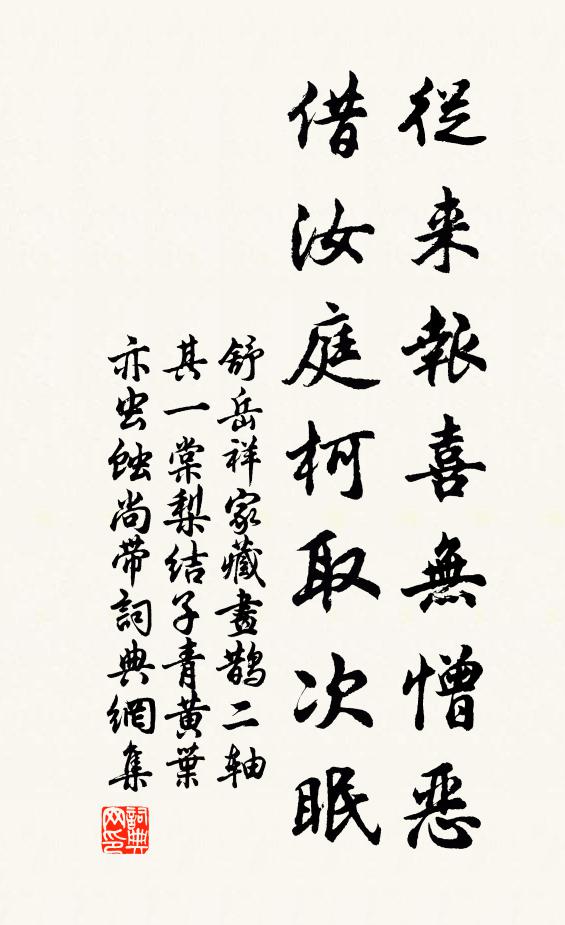 從来報喜無憎恶
借汝庭柯取次眠
舒岳祥家藏畫鵲二軸
其一棠梨結子青黃葉
亦虫蝕尚帶詞典網集
詞典
网印